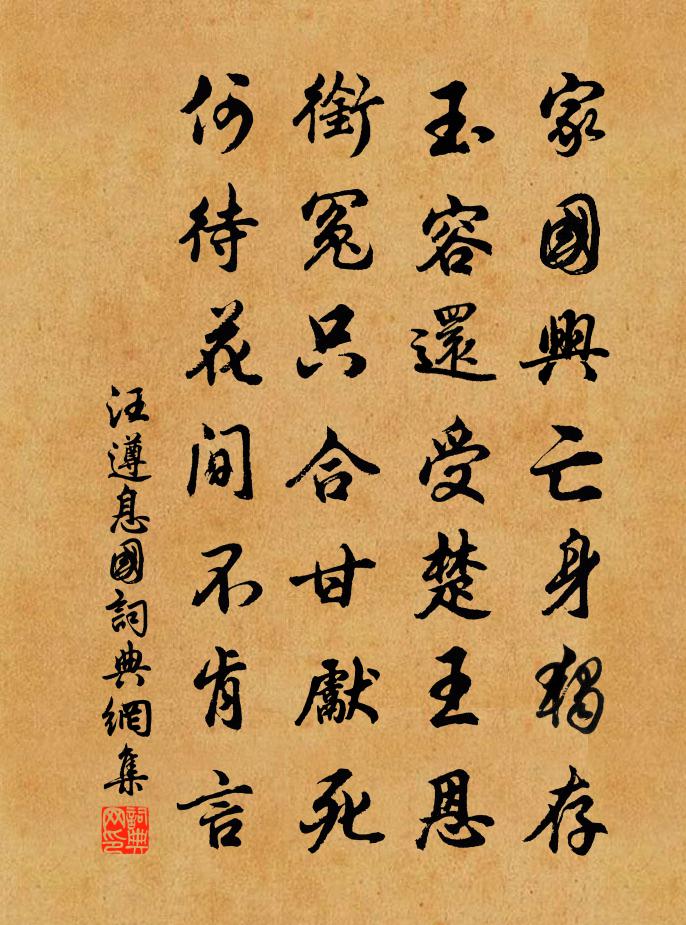 家國興亡身獨存
玉容還受楚王恩
銜冤只合甘獻死
何待花間不肯言
汪遵息國詞典網集
詞典网印